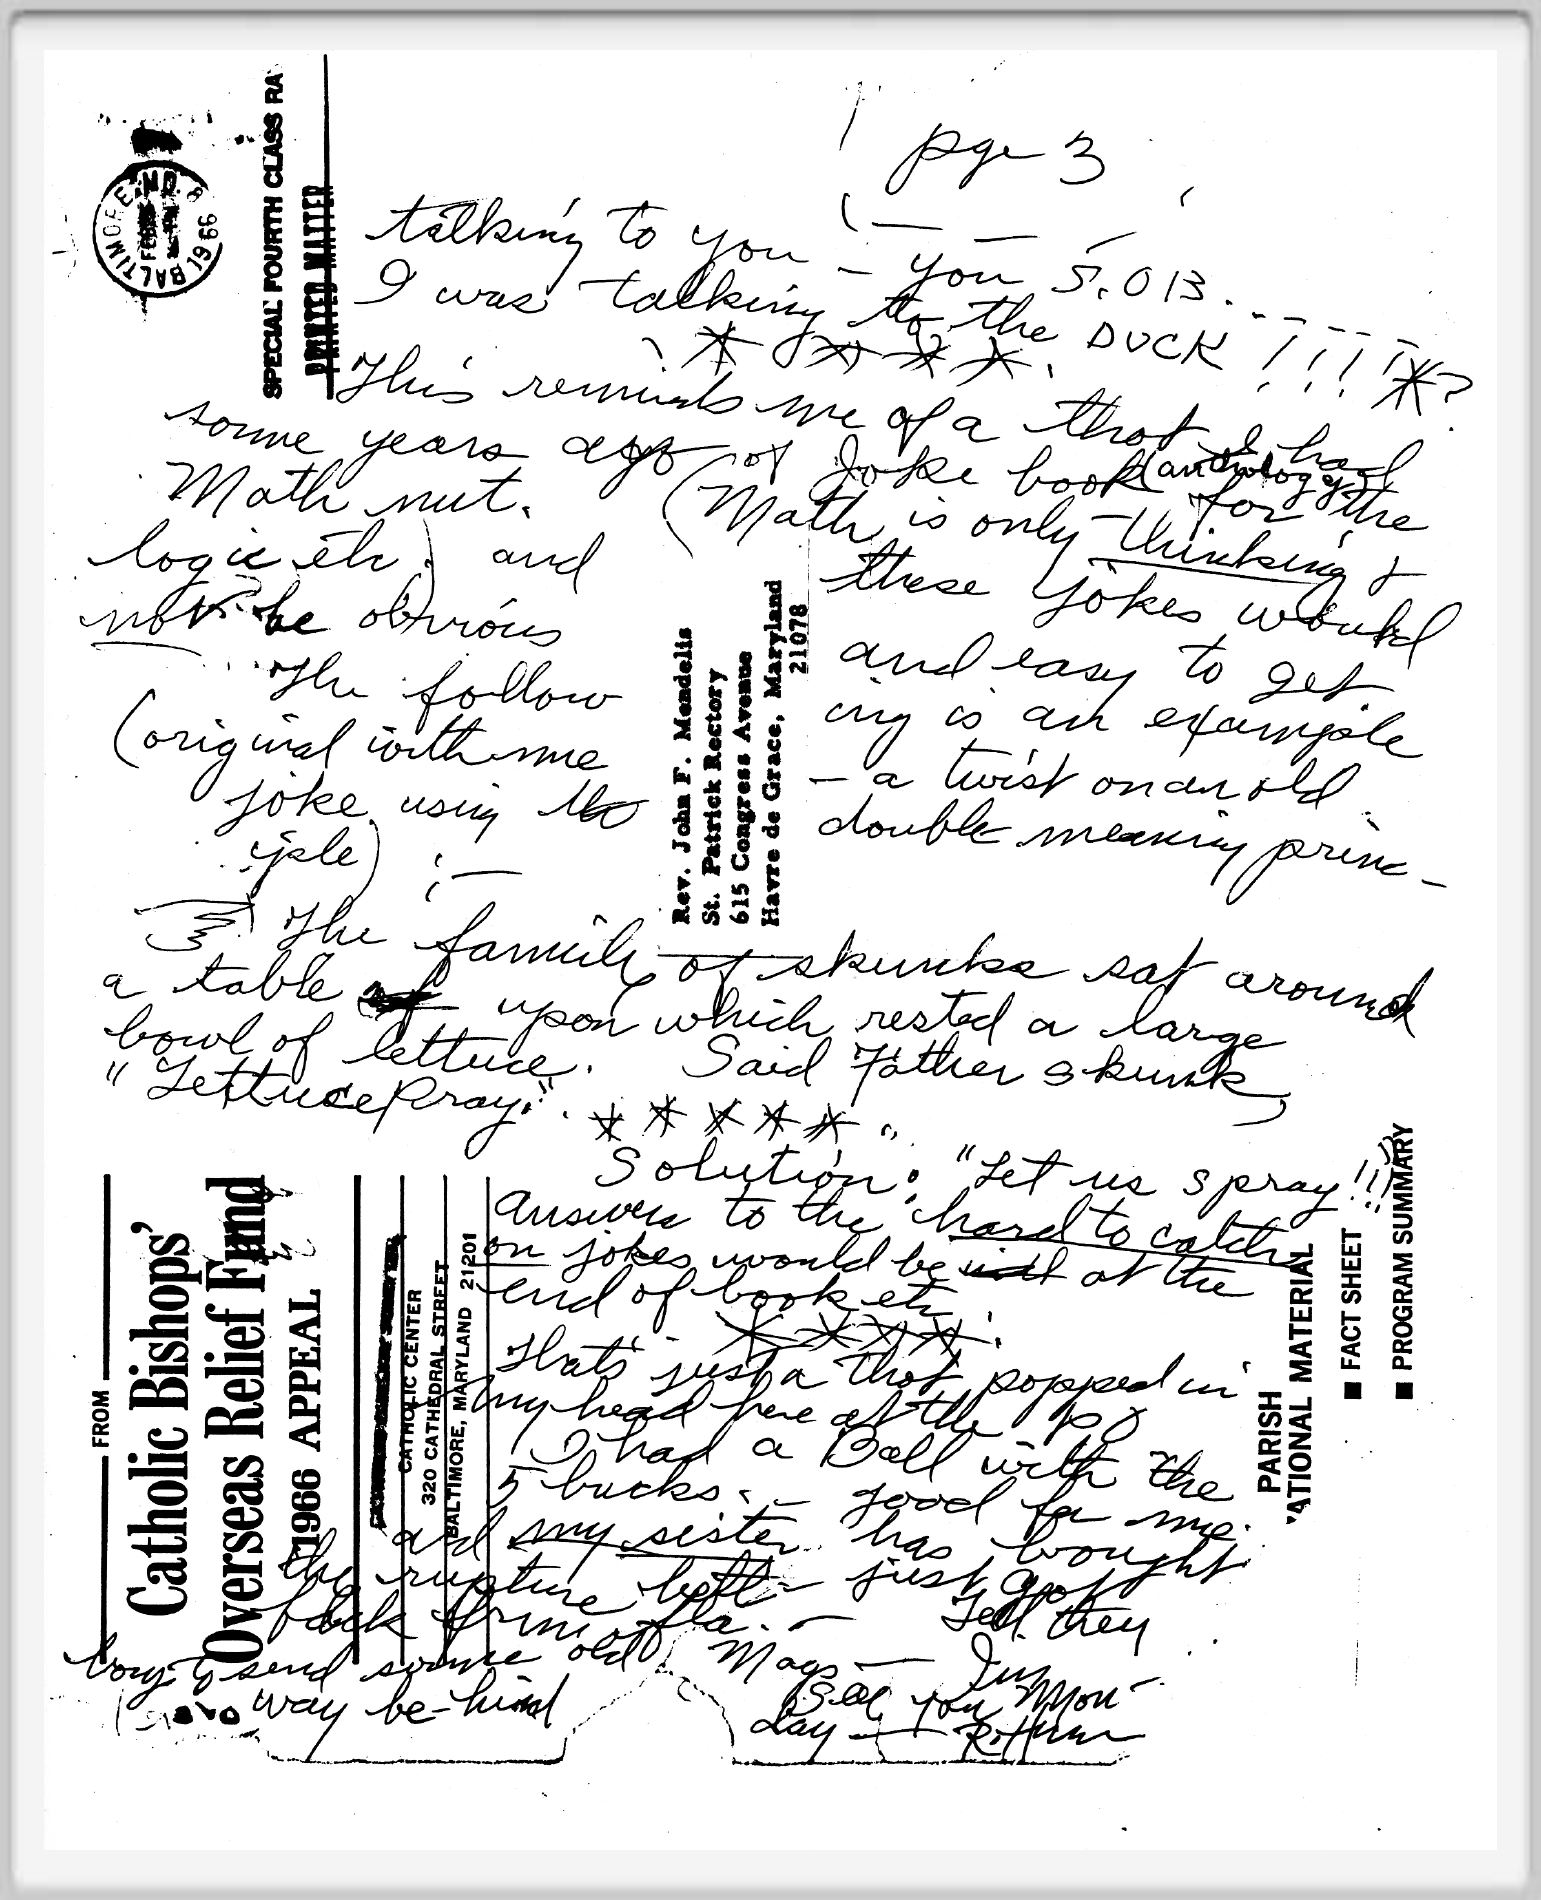 pge 3
talking to you — you S.O.B. - - - -
I was talking to the DUCK ! ! ! ! * ?
* * * *
This reminds me of a thot I had
some years ago of Joke book (anthology) for the
Math nut. (Math is only thinking &
logic etc.) and these jokes would
not be obvious and easy to get
The following is an example
(original with me — a twist on an old
joke using the double meaning princ-
iple) :—
The family of skunks sat around
a table upon which rested a large
bowl of lettuce. Said Father skunk,
"Lettuce Pray."
* * * * *
Solution: "Let us spray!!!"
Answers to the hard to catch
on jokes would be at the
end of book etc.
* * * *
That's just a thot popped in
my head here at the PO
I had a Ball with the
5 bucks. — good for me.
and my sister has bought
the rupture belt — just got
back from Fla. — Tell they
boys to send some old Mags — I'm
way be-hind
See you Mon-
day —
SPECIAL FOURTH CLASS RA
PRINTED MATTER
BALTIMORE MD.
FEB
1966
Rev. John F. Mendelis
St. Patrick Rectory
615 Congress Avenue
Havre de Grace, Maryland
21078
FROM
Catholic Bishops'
Overseas Relief Fund
1966 APPEAL
CATHOLIC CENTER
320 CATHEDRAL STREET
BALTIMORE, MARYLAND 21201
PARISH
ATIONAL MATERIAL
■ FACT SHEET
■ PROGRAM SUMMARY